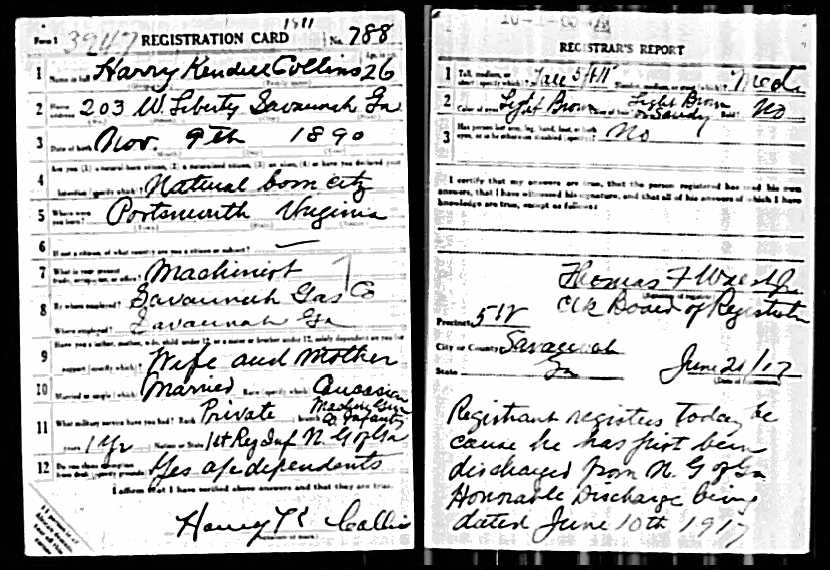 1911
Form 1 3947 REGISTRATION CARD No. 788
1 Name in full Harry Kendell Collins 26
2 Home address 203 W. Liberty Savannah Ga
3 Date of birth Nov. 9th 1890
Are you (1) a natural born citizen, (2) a naturalized citizen, (3) an alien, (4) or have you declared your
4 intention (specify which)? Natural born citz
5 Where were you born? Portsmouth Virginia
6 If not a citizen, of what country are you a citizen or subject? —
7 What is your present trade, occupation, or office? Machinist
8 By whom employed? Savannah Gas Co
Where employed? Savannah Ga
Have you a father, mother, wife, child under 12, or a sister or brother under 12, solely dependent on you for
9 support (specify which)? Wife and Mother
10 Married or single (which)? Married Race (specify which)? Caucasian
Machine Gun
11 What military service have you had? Rank Private branch Co Infantry
years 1 yr Nation or State 1st Reg Inf N. G of Ga
12 Do you claim exemption from draft (specify grounds)? Yes a/c dependents
I affirm that I have verified above answers and that they are true.
Harry K Collins
REGISTRAR'S REPORT
1 Tall, medium, or short (specify which)? Tall 5/11 Slender, medium, or stout (which)? Med
2 Color of eyes Light Brown Color of hair Light Brown or Sandy Bald? No
3 Has person lost arm, leg, hand, foot, or both eyes, or is he otherwise disabled (specify)? No
I certify that my answers are true, that the person registered has read his own
answers, that I have witnessed his signature, and that all of his answers of which I have
knowledge are true, except as follows:
Thomas F
(Signature of registrar)
Clk Board of Registration
Precinct 5 W
City or County Savannah
State Ga June 21/17
(Date of registration)
Registrant registers today be
cause he has just been
discharged from N. G of Ga
Honorable Discharge being
dated June 10th 1917